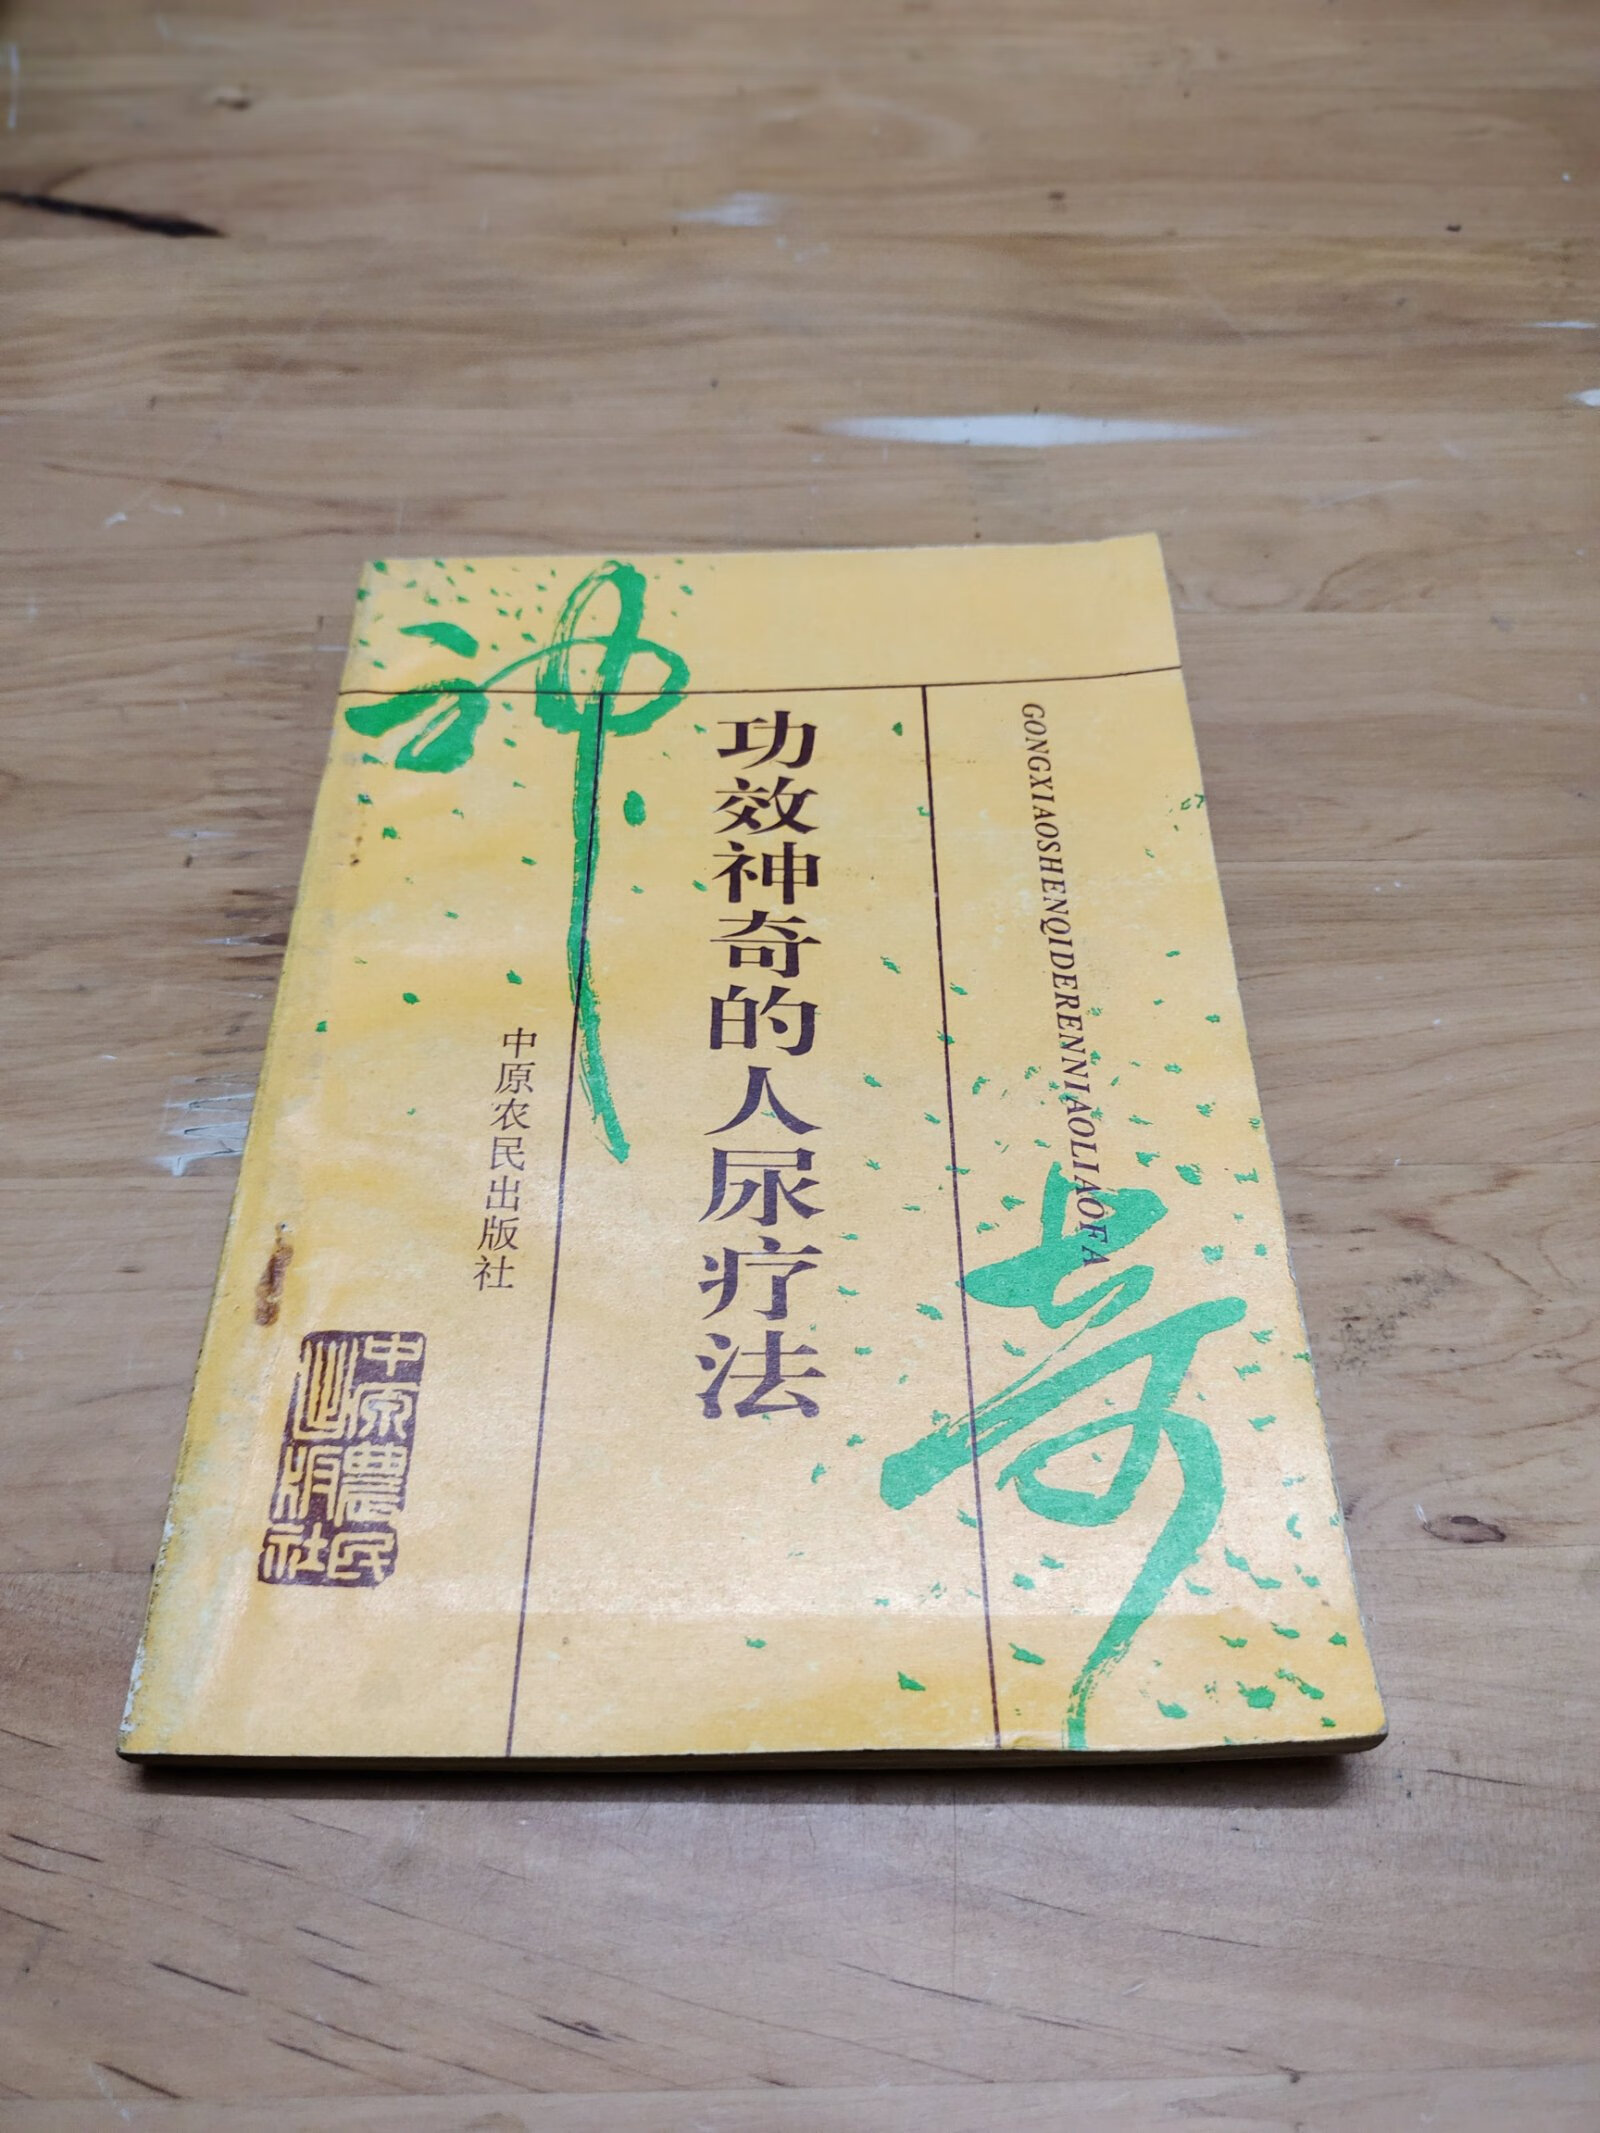 神奇
功效神奇的人尿疗法
GONGXIAOSHENQIDERENNIAOLIAOFA
中原农民出版社
中原農民
出版社